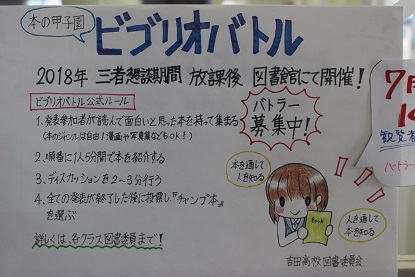 本の甲子園
ビブリオバトル
2018年 三者懇談期間 放課後 図書館にて開催!
ビブリオバトル公式ルール
1.発表参加者が読んで面白いと思った本を持って集まる
(本のジャンルは自由!漫画や写真集などもOK!)
2.順番に1人5分間で本を紹介する
3.ディスカッションを2〜3分行う
4.全ての発表が終了した後に投票し、『チャンプ本』
を選ぶ
詳しくは、各クラス図書委員まで!
バトラー
募集中!
本を通して
人を知る
Book
人を通して
本を知る
吉田高校 図書委員会
7月
観覧者
バトラー